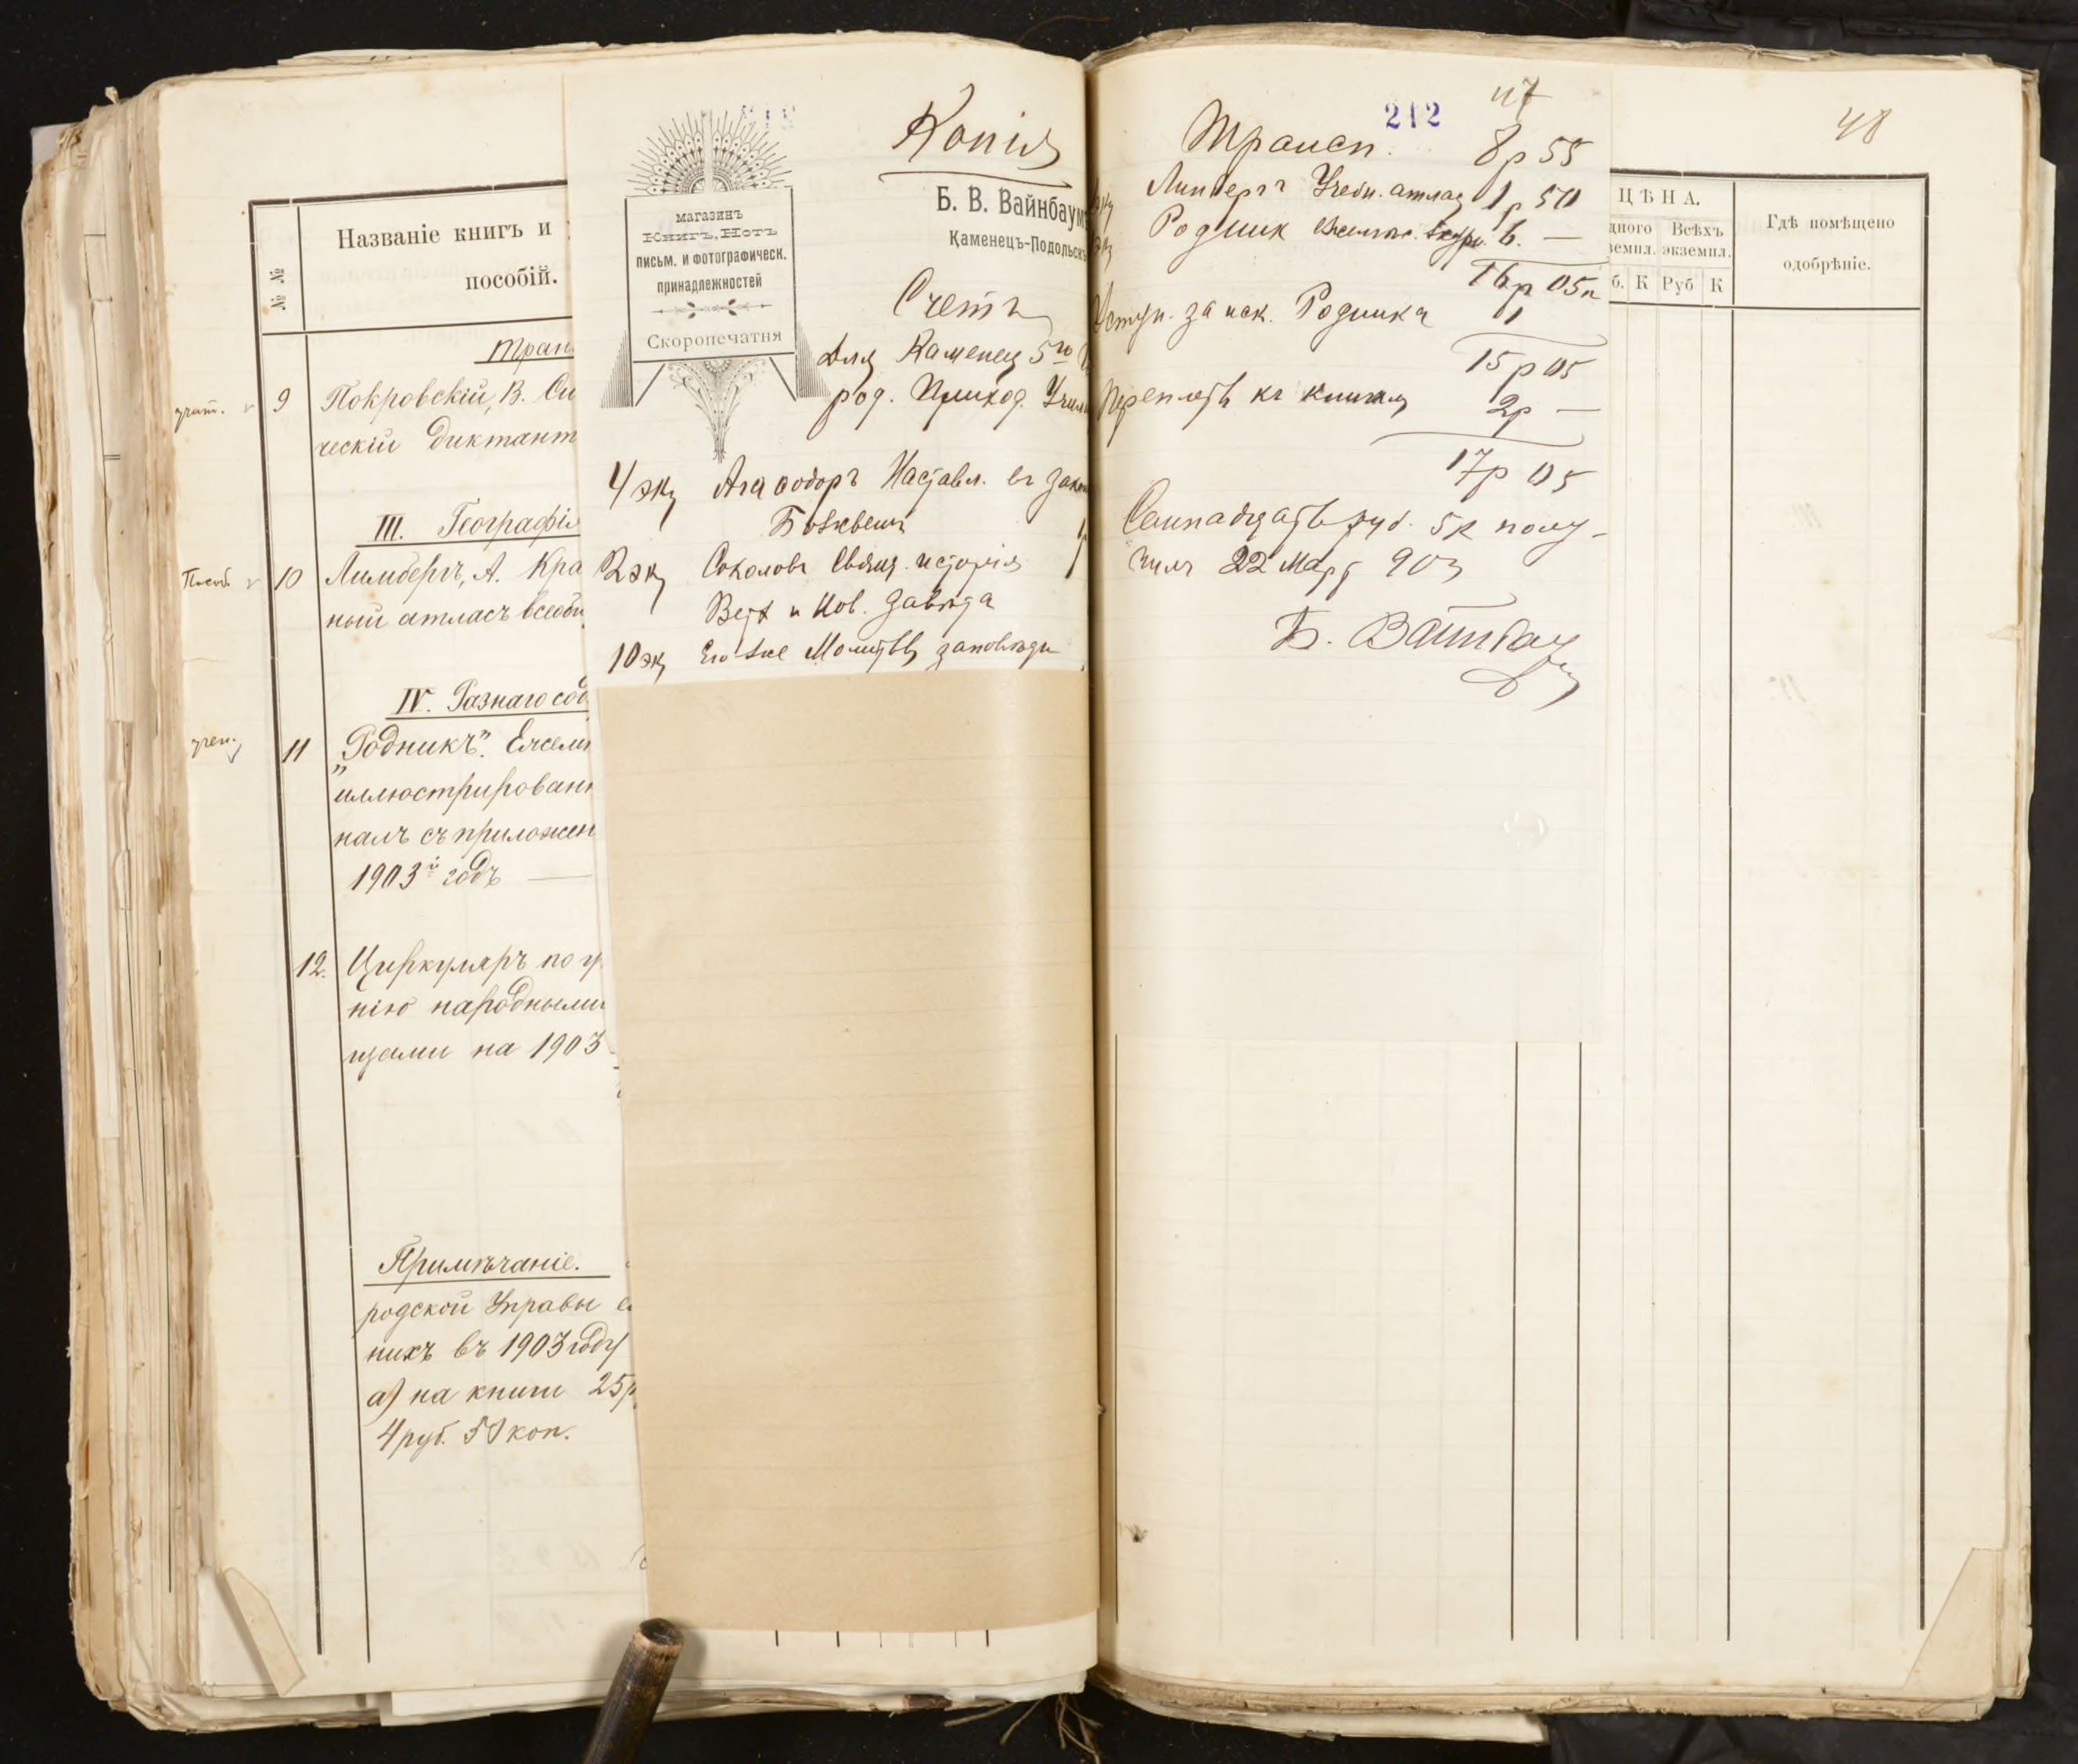 Названіе книгъ и
пособій.
№ №
Тран
учит. 9 Покровскій, В. Си
ческій диктант
III. Географія
Пособ. 10 Линбергъ, А. Кра
ный атласъ всеобщ
IV. Разнаго сод
учен. 11 „Родникъ". Ежеми
иллюстрирован
налъ съ приложен
1903й годъ —
12. Циркуляръ по у
нію народными
щами на 1903
Примѣчаніе.
родской Управы
никъ въ 1903 году
а) на книги 25р
4 руб. 50 коп.
Копія
магазинъ
Книгъ, Нотъ
письм. и фотографическ.
принадлежностей
Скоропечатня
Б. В. Вайнбаум
Каменецъ-Подольскъ
Счетъ
Для Каменец 5го
род. Приход. Учил
4 экз Агаѳодоръ Наставл. въ зако
Божьемъ
2 экз Соколовъ Свящ. исторія
Ветх и Нов. Завѣта
10 экз Его же Молитвы заповѣди
212 47
Трансп. 8 р 55
Линбергъ Учебн. атлас 1 р 50
Родник 6. —
16 р 05к
Уступ. за иск. Родника 1
15 р 05
Переплетъ къ книгам 2р —
17р 05
Семнадцать руб. 5к полу-
чилъ 22 Март 903
Б. Вайнбаум
48
ЦѢНА.
дного Всѣхъ
земпл. экземпл.
б. К Руб К
Гдѣ помѣщено
одобрѣніе.